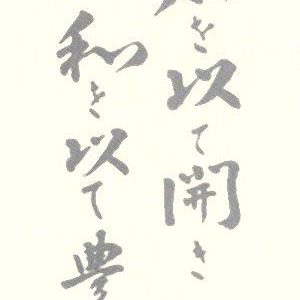 を以て開き
和を以て豊